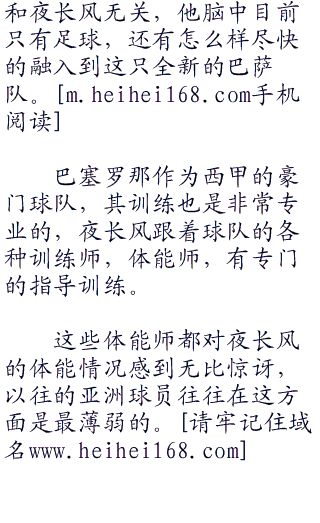 和夜长风无关，他脑中目前
只有足球，还有怎么样尽快
的融入到这只全新的巴萨
队。[m.heihei168.com手机
阅读]
巴塞罗那作为西甲的豪
门球队，其训练也是非常专
业的，夜长风跟着球队的各
种训练师，体能师，有专门
的指导训练。
这些体能师都对夜长风
的体能情况感到无比惊讶，
以往的亚洲球员往往在这方
面是最薄弱的。[请牢记住域
名www.heihei168.com]